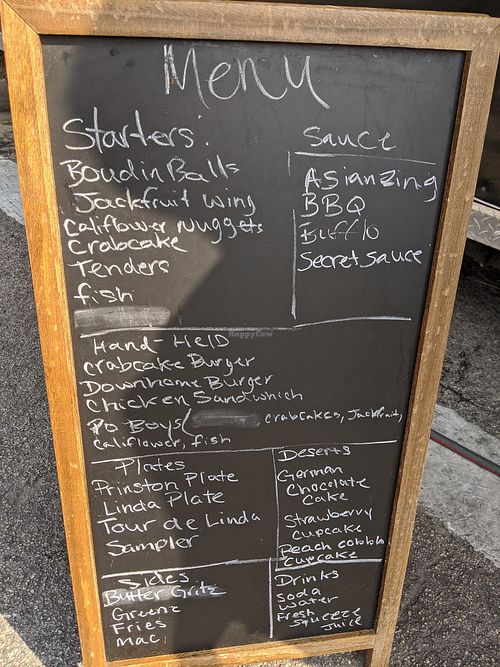 Menu
Starters:
Boudin Balls
Jackfruit wing
Califlower Nuggets
Crabcake
Tenders
fish
Sauce
Asian Zing
BBQ
Bufflo
Secret Sauce
HappyCow
Hand-HElD
Crabcake Burger
Downhome Burger
Chicken Sandwhich
Po Boys( Crabcakes, Jackfruit,
Califlower, fish
Plates
Prinston Plate
Linda Plate
Tour de Linda
Sampler
Deserts
German
Chocolate
Cake
Strawberry
Cupcake
Peach cobbler
Cupcake
Sides
Butter Gritz
Greenz
Fries
Mac
Drinks
Soda
Water
Fresh
Squeeze
Juice